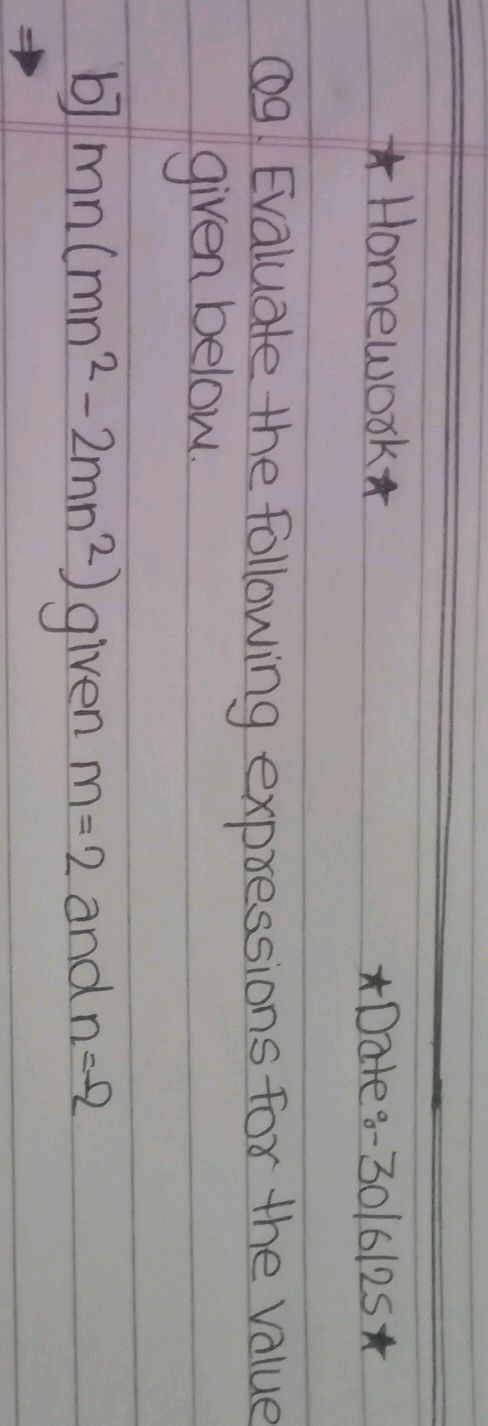 ★ Homework ★ ★ Date:- 30/6/25 ★
Q9. Evaluate the following expressions for the value
given below.
b] mn(mn² - 2mn²) given m = 2 and n = -2
⇒